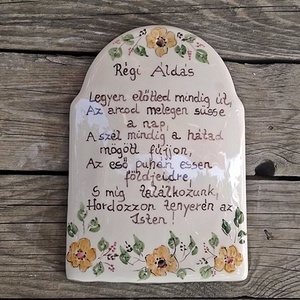 Régi Áldás
Legyen előtted mindig út,
Az arcod melegen süsse
a nap,
A szél mindig a hátad
mögött fújjon,
Az eső puhán essen
földjeidre,
S míg találkozunk,
Hordozzon tenyerén az
Isten!